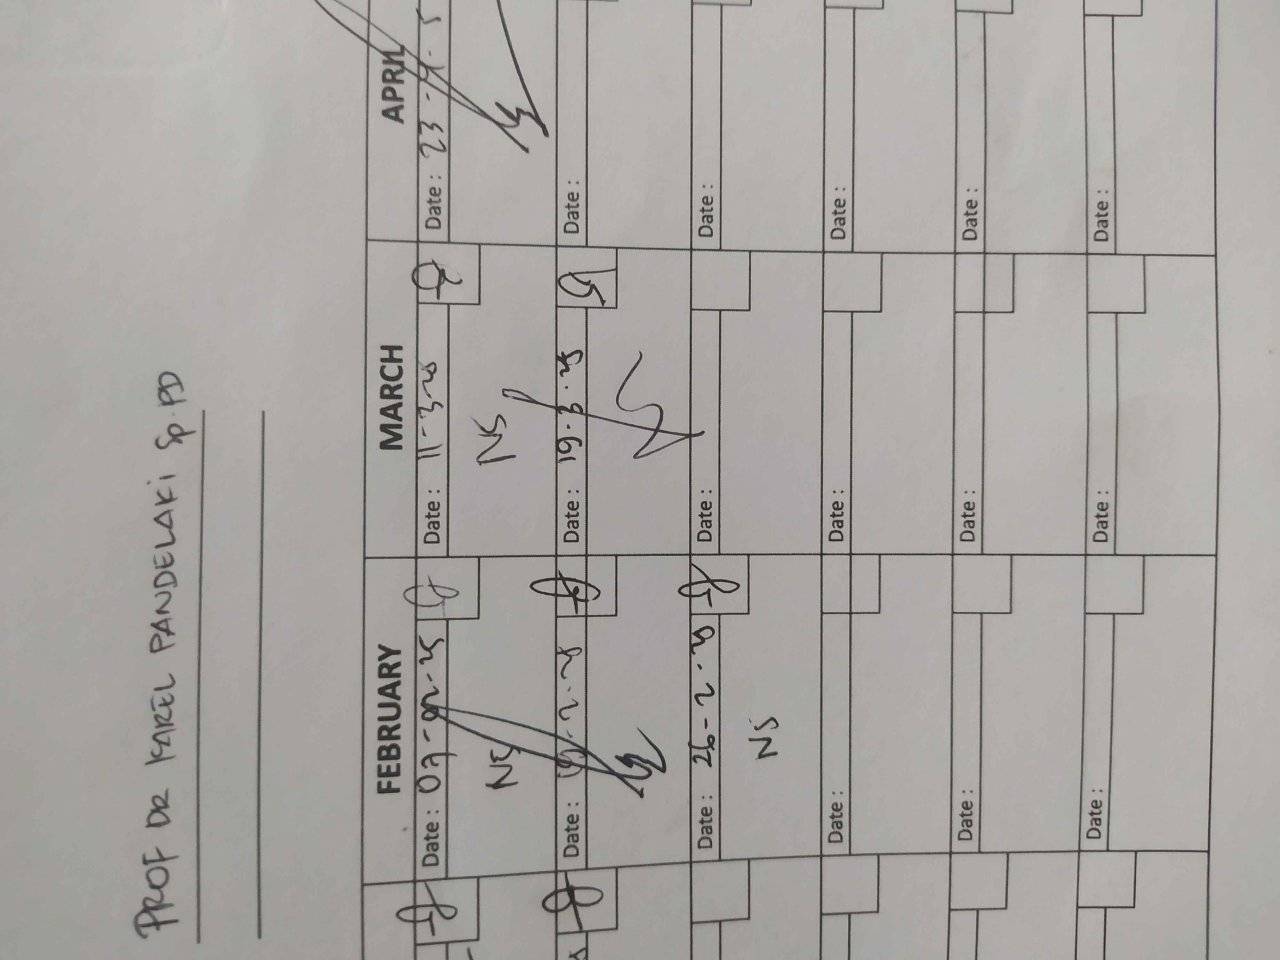 PROF DR KAREL PANDELAKI Sp.PD
FEBRUARY MARCH APRIL
Date : 07-02-25 Date : 11-3-25 Date : 23-4-5
NS NS
Date : 19-2-25 Date : 19.3.25 Date :
Date : 26-2-25 Date : Date :
NS
Date : Date : Date :
Date : Date : Date :
Date : Date : Date :